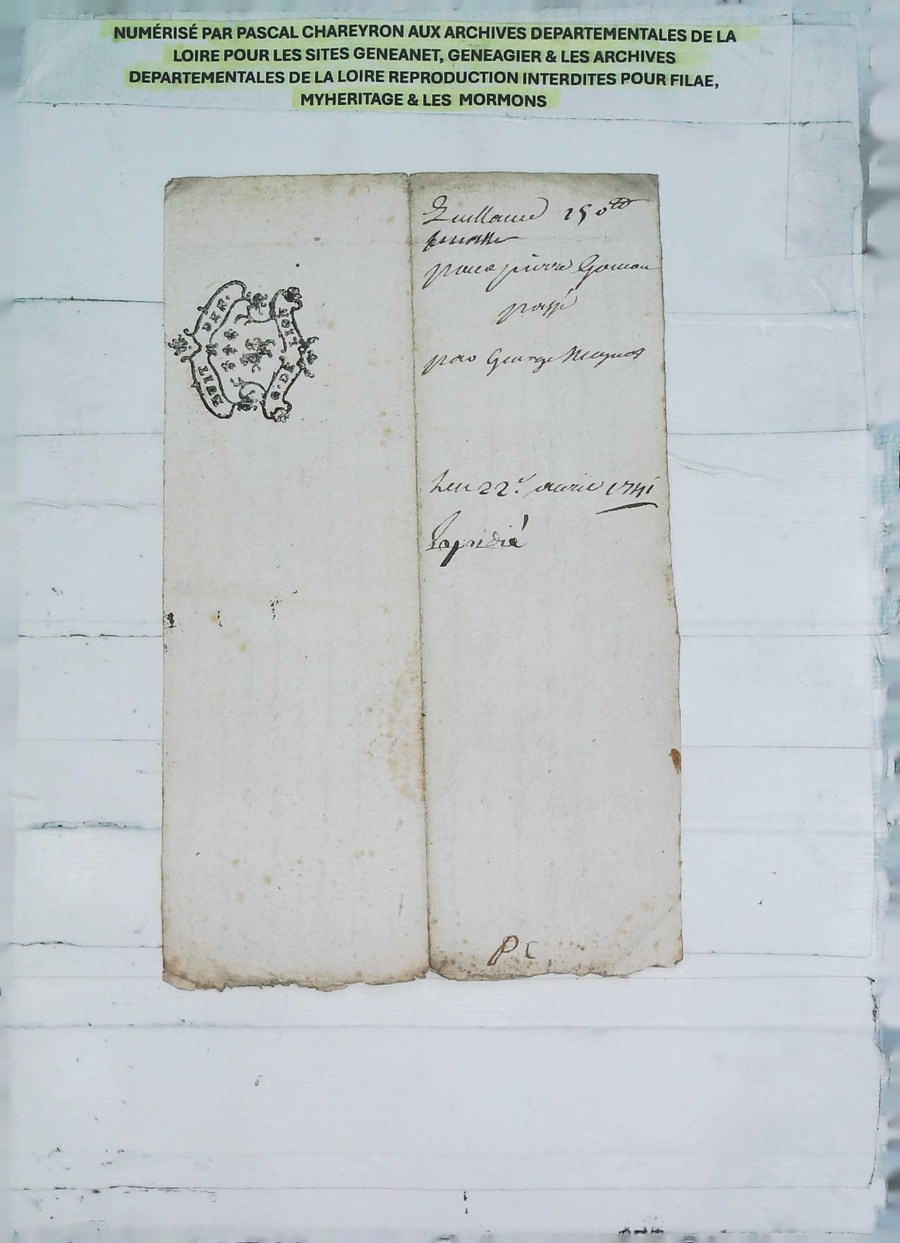 NUMÉRISÉ PAR PASCAL CHAREYRON AUX ARCHIVES DEPARTEMENTALES DE LA
LOIRE POUR LES SITES GENEANET, GENEAGIER & LES ARCHIVES
DEPARTEMENTALES DE LA LOIRE REPRODUCTION INTERDITES POUR FILAE,
MYHERITAGE & LES MORMONS
G. DE
HUIT DEN.
150tt
pour pierre
passé
par George
Du 22e avril 1741
Expedié
PC